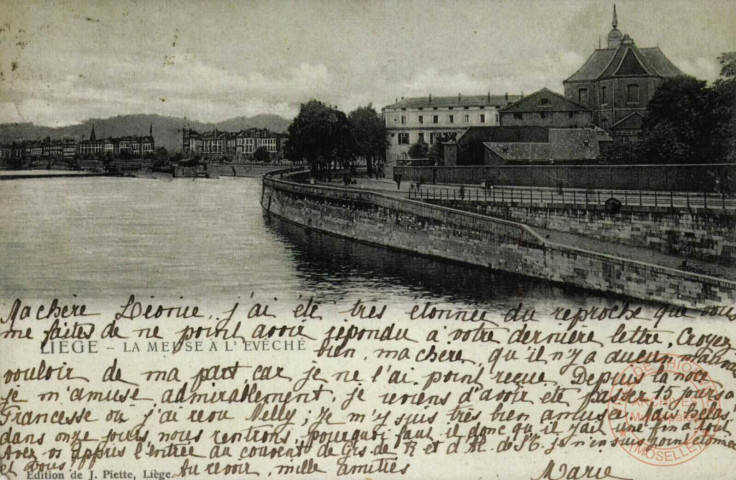 Ma chère Léonie, j'ai été très étonnée du reproche que vous
me faites de ne point avoir répondu à votre dernière lettre, Croyez
LIEGE - LA MEUSE À L'EVÊCHÉ
bien, ma chère, qu'il n'y a aucun mauvais
vouloir de ma part car je ne l'ai point reçue. Depuis la noce
je m'amuse admirablement, je reviens d'avoir été passer 15 jours à
Francesse où j'ai revu Nelly; Je m'y suis très bien amusée. Mais hélas
dans onze jours nous rentrons, pourquoi faut-il donc qu'il y ait une fin à tout
Avez-vs appris l'entrée au couvent de je n'en suis point étonnée
et vous?
Au revoir, mille amitiés
Marie
Edition de J. Piette, Liège.